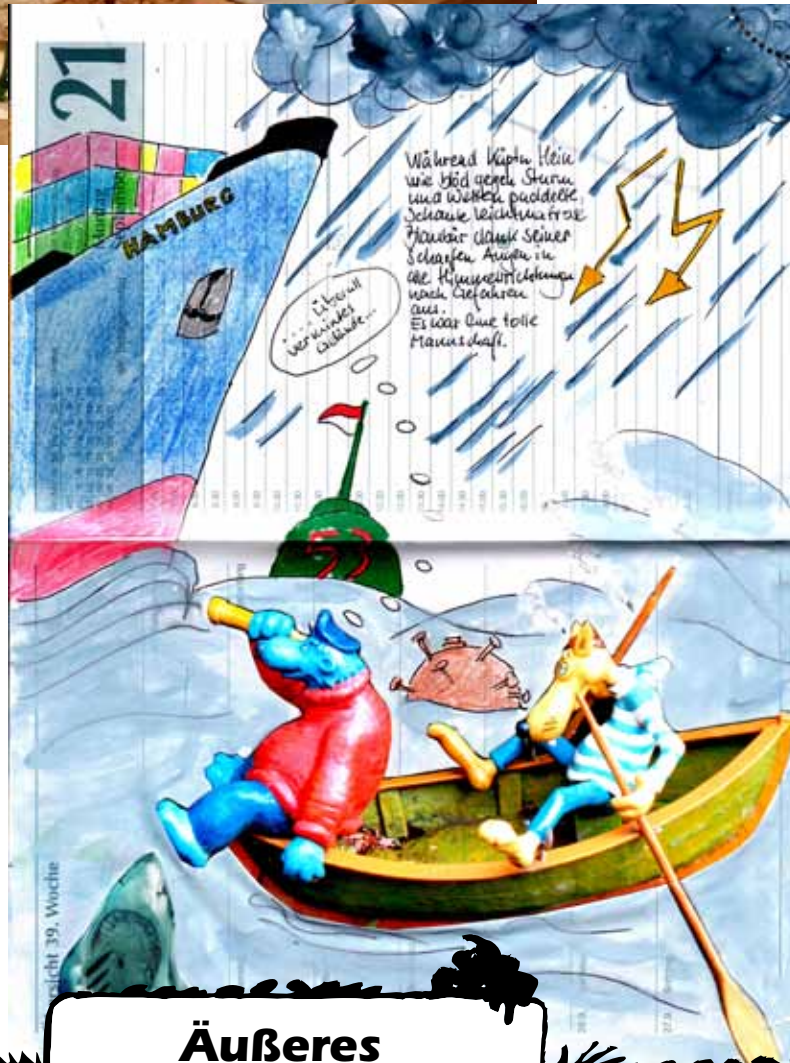 21
HAMBURG
Während Käptn Hein
wie blöd gegen Sturm
und Wellen paddelte,
schaute Leichtmatrose
Blaubär dank seiner
scharfen Augen in
alle Himmelsrichtungen
nach Gefahren
aus.
Es war eine tolle
Mannschaft.
.... überall
vermintes
Gelände...
53
sicht 39. Woche
Äußeres